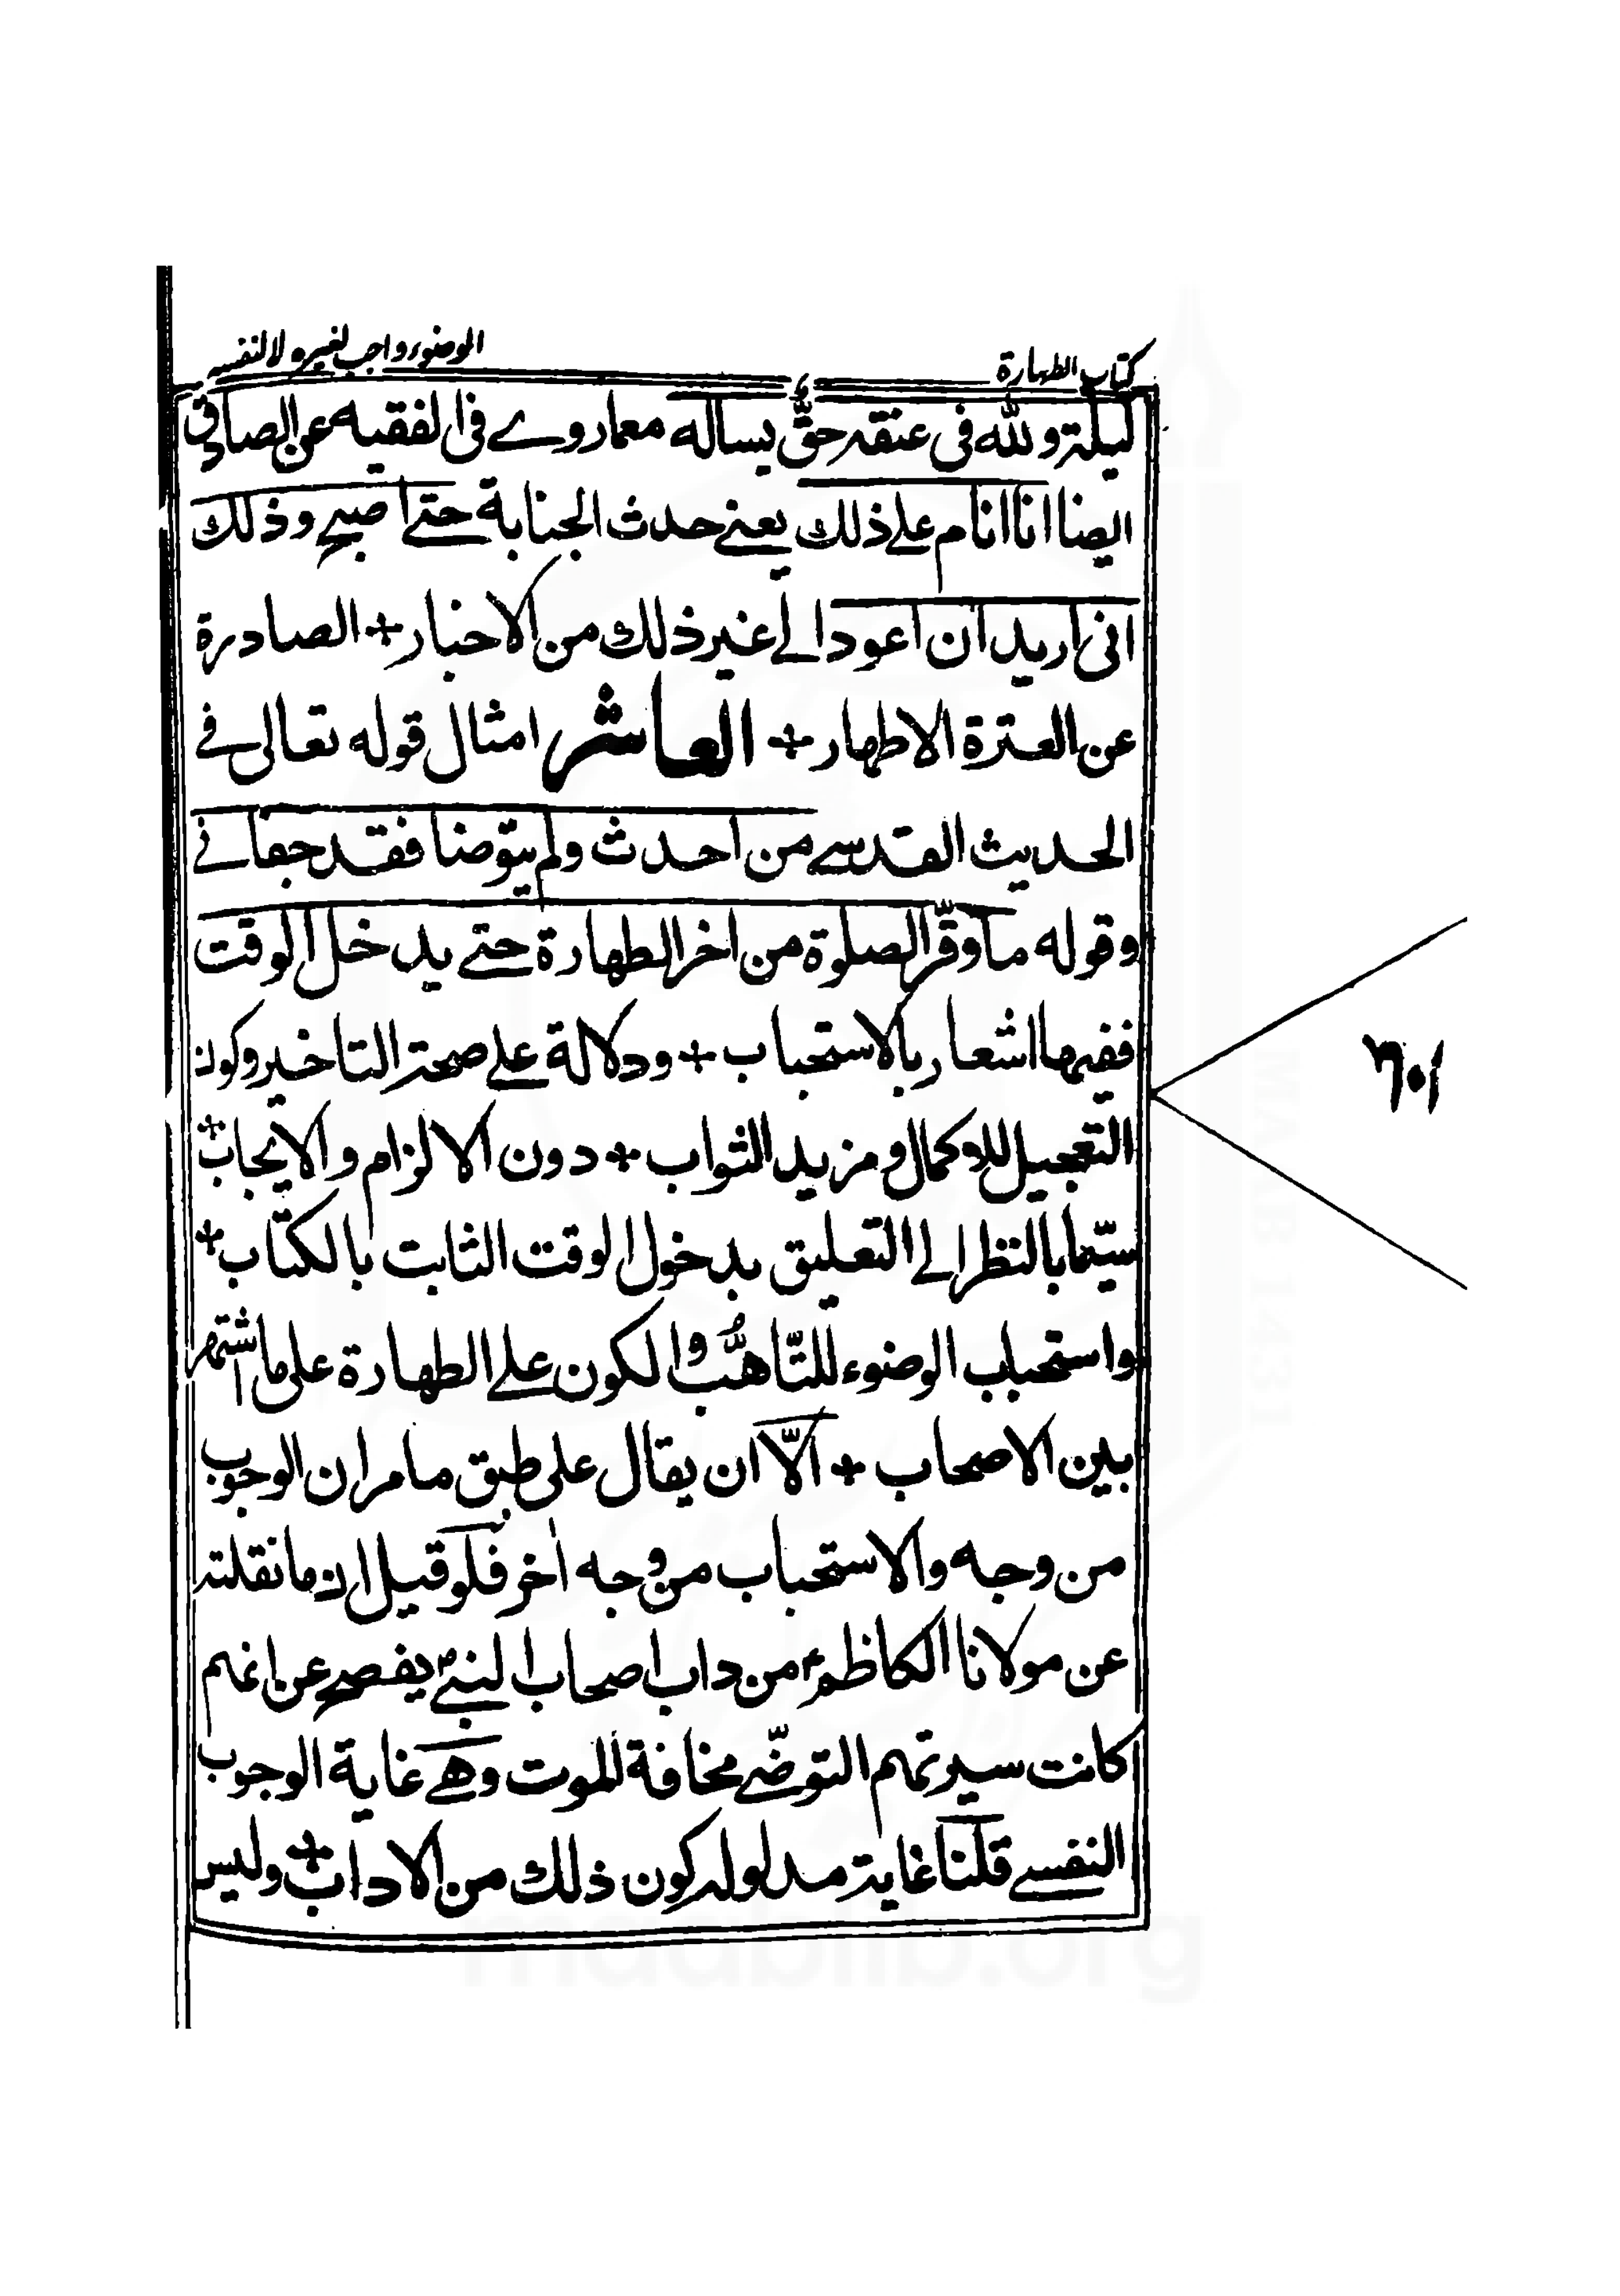 كتاب الطهارة
الوضوء واجب لغيره لا لنفسه
ليلته ولله فى عنقه حقٌّ يساله معماروے فى الفقيه عن الصادق
ايضا انا انام علے ذلك يعنے حدث الجنابة حتے اصبح وذلك
انى اريد ان اعود الے غير ذلك من الاخبار + الصادرة
عن العترة الاطهار + العاشر امثال قوله تعالى فے
الحديث القدسے من احدث ولم يتوضا فقد جفانے
وقوله ما وقّر الصلوة من اخر الطهارة حتے يدخل الوقت
ففيها اشعار بالاستحباب + ودلالة علے صحة التاخير وكون
التعجيل للاكمال ومزيد الثواب + دون الالزام والايجاب +
سيّما بالنظر الے التعليق بدخول الوقت الثابت بالكتاب +
واستحباب الوضوء للتّاهُّب والكون علے الطهارة على ما اشتهر
بين الاصحاب + الّا ان يقال على طبق ما مر ان الوجوب
من وجه والاستحباب من وجه اخر فلو قيل ان ما نقلته
عن مولانا الكاظم ع من داب اصحاب النبے ص يفصح عن انهم
كانت سيرتهم التوضّے مخافة الموت وهے غاية الوجوب
النفسے قلنا غاية مدلوله كون ذلك من الاداب + وليس
١٠٦
maablib.org
MAAB 1431